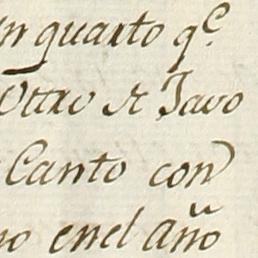 un quarto q.e
Ottro st Favo
Canto con
no enel año